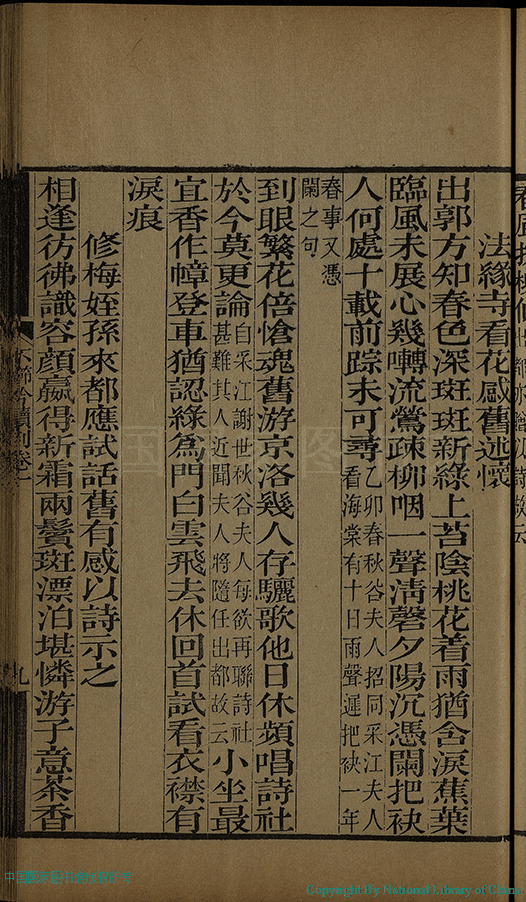 法緣寺看花感舊述懷
出郭方知春色深斑斑新綠上苔陰桃花着雨猶含淚蕉葉
臨風未展心幾囀流鶯疎柳咽一聲清磬夕陽沉憑闌把袂
人何處十載前踪未可尋乙卯春秋谷夫人招同采江夫人看海棠有十日雨聲遲把袂一年
春事又憑闌之句
到眼繁花倍愴魂舊游京洛幾人存驪歌他日休頻唱詩社
於今莫更論自采江謝世秋谷夫人每欲再聯詩社甚難其人近聞夫人將隨任出都故云小坐最
宜香作幛登車猶認綠為門白雲飛去休回首試看衣襟有
淚痕
修梅姪孫來都應試話舊有感以詩示之
相逢彷彿識容顏贏得新霜兩鬢斑漂泊堪憐游子意茶香
卷一
九
Copyright By National Library of China